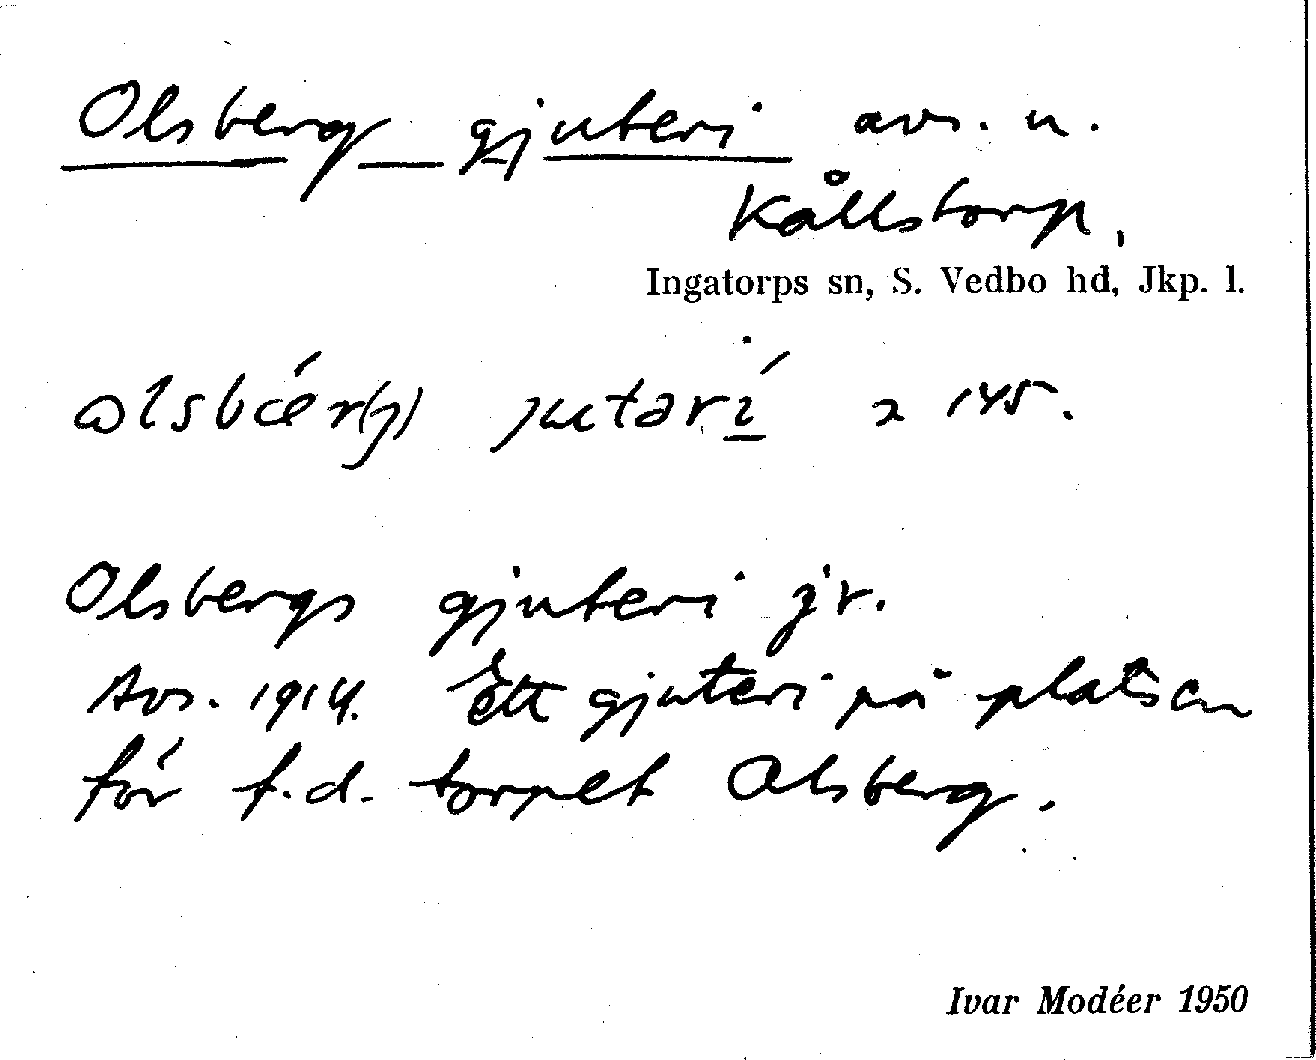 Olsberg gjuteri avs. u.
Kållstorp,
Ingatorps sn, S. Vedbo hd, Jkp. l.
145.
Olsbergs gjuteri jr.
Avs. 1914. Ett gjuteri på platsen
för f.d. torpet Olsberg.
Ivar Modéer 1950